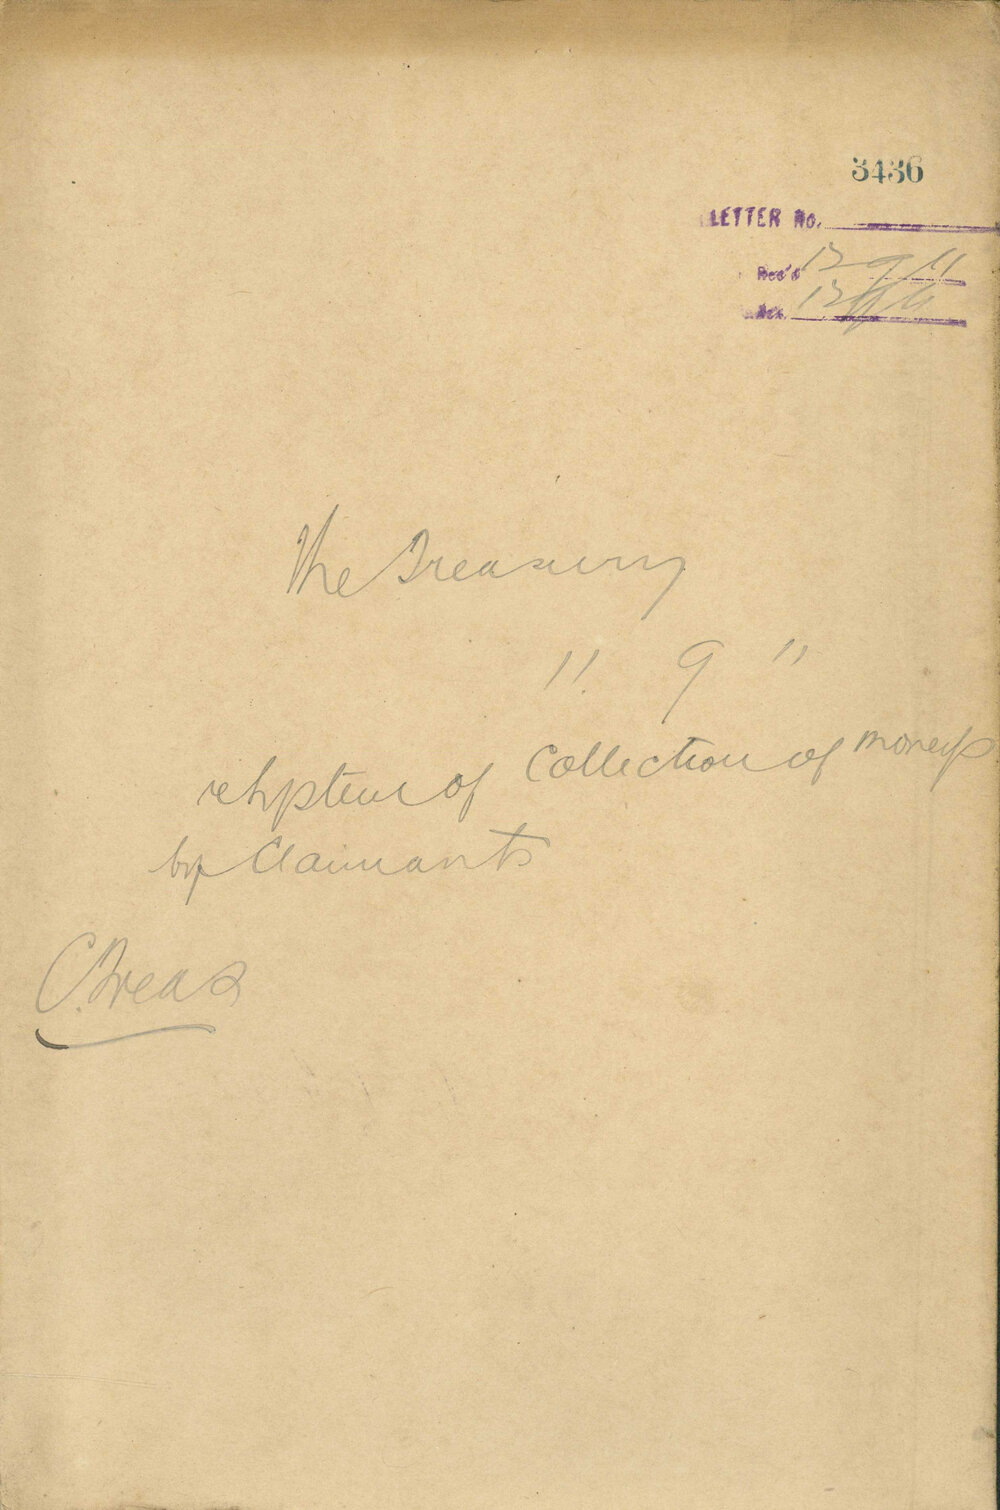 3436
LETTER No.
Rec'd 12 9 11
12 9 11
The Treasury
11. 9 11
system of Collection of moneys
by Claimants
C. Treas